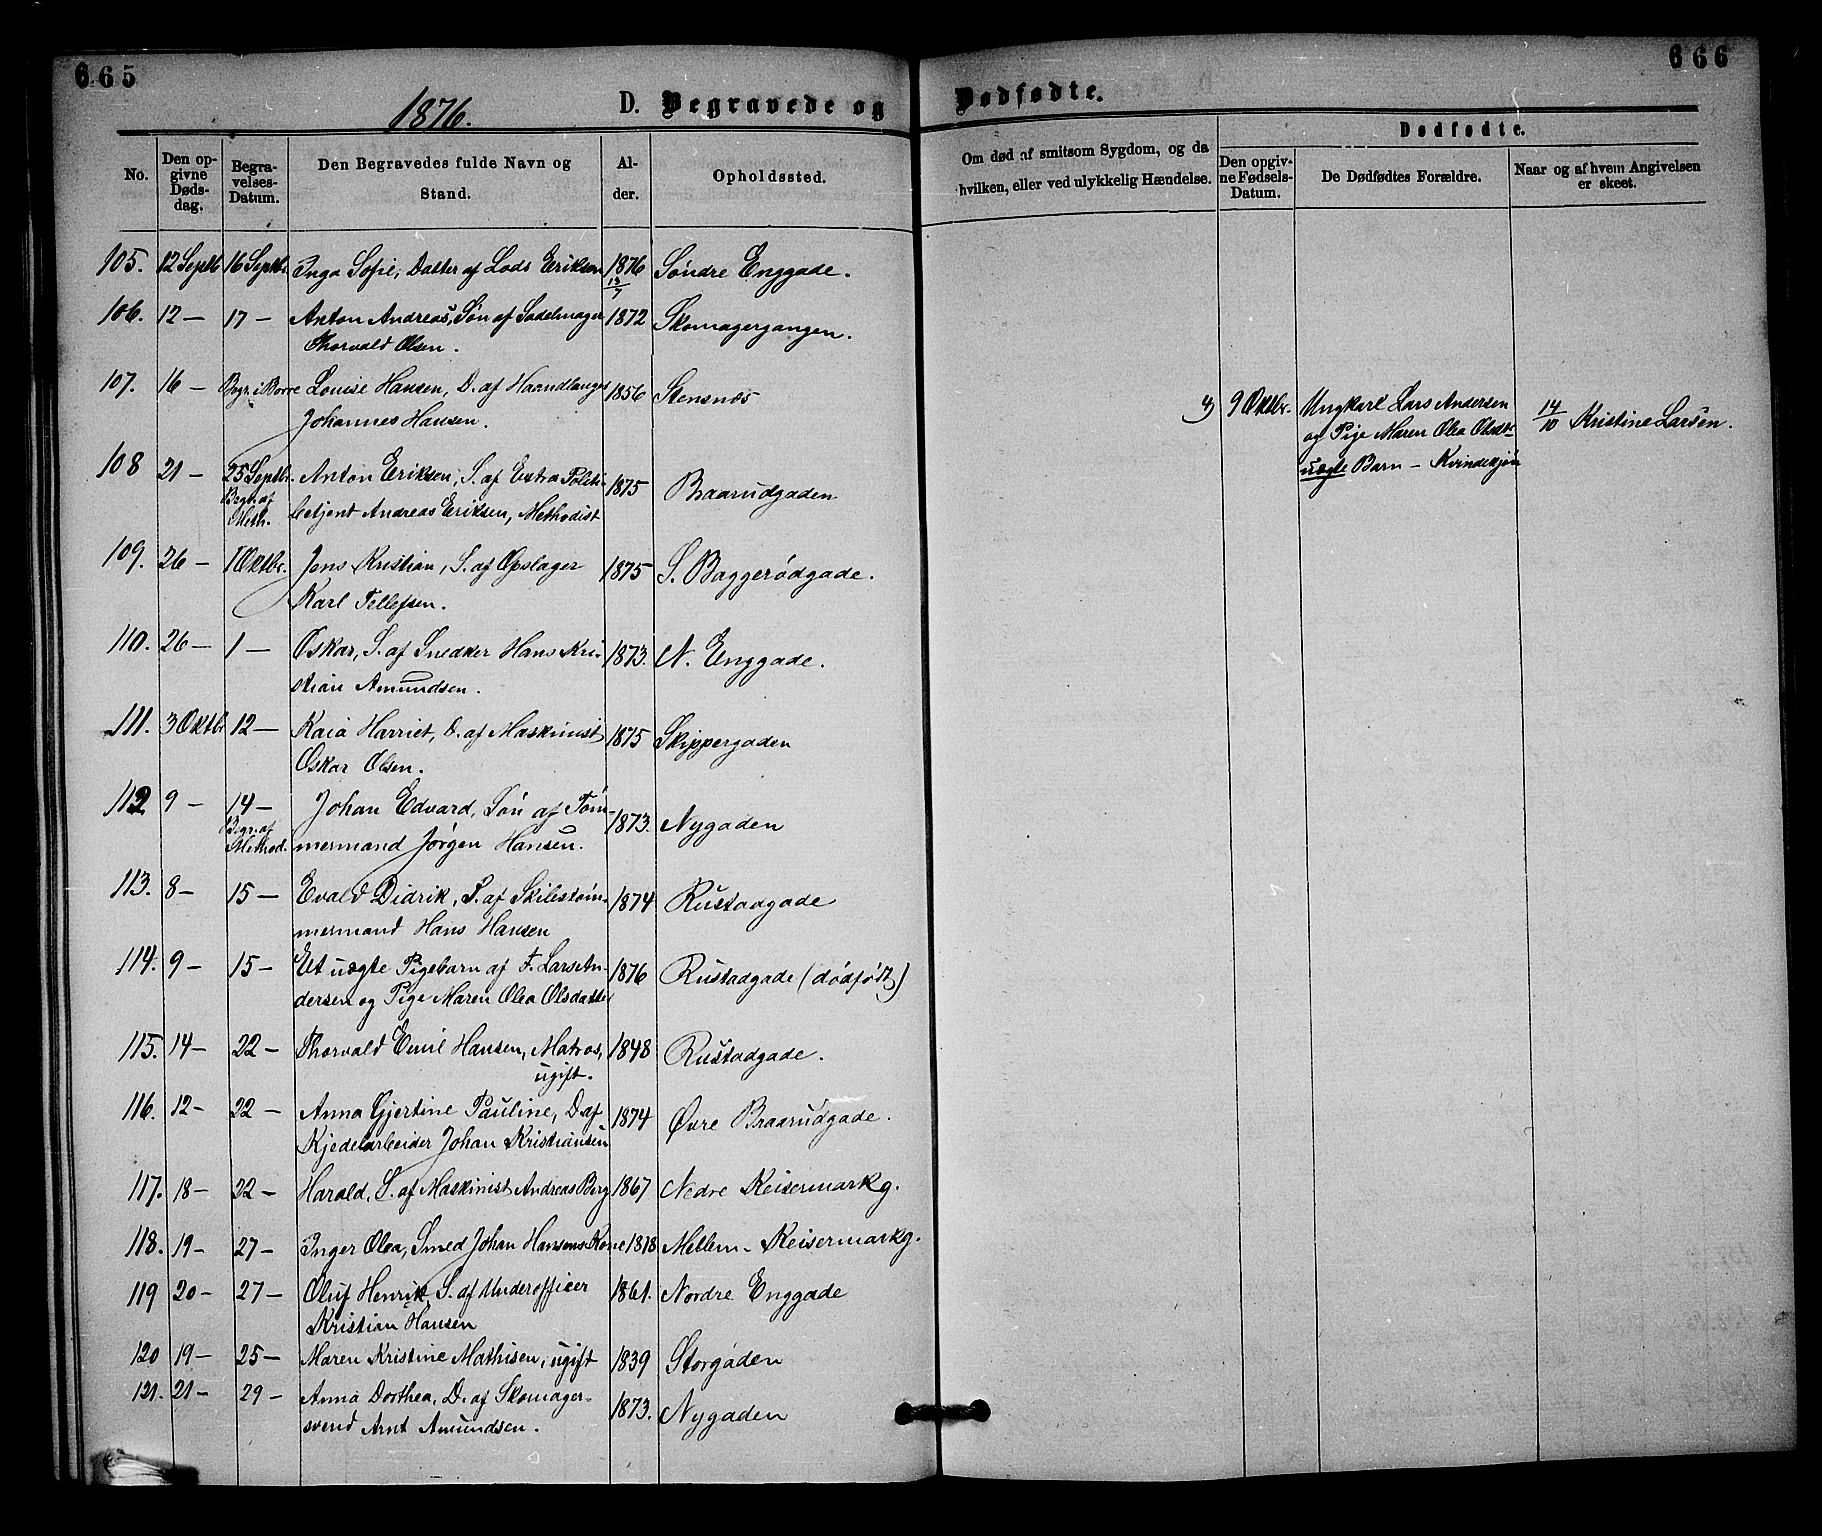 665
666
1876.
D. Begravede og Dødfødte.
No.
Den opgivne Dødsdag.
Begravelses-Datum.
Den Begravedes fulde Navn og Stand.
Alder.
Opholdssted.
Om død af smitsom Sygdom, og da hvilken, eller ved ulykkelig Hændelse.
Dødfødte.
Den opgivne Fødsels-Datum.
De Dødfødtes Forældre.
Naar og af hvem Angivelsen er skeet.
105. 12 Septb 16 Septbr. Inga Sofie, Datter af Lods Eriksen 1876 13/7 Søndre Enggade.
106. 12 — 17 — Anton Andreas, Søn af Sadelmager 1872 Skomagergangen.
Thorvald Olsen.
107. 16 — Begr. i Borre Louise Hansen, D. af Haandlanger 1856 Stensnæs
Johannes Hansen.
4) 9 Oktbr. Ungkarl Lars Andersen 14/10 Kristine Larsen.
og Pige Maren Olea Olsdtr.
uægte Barn — Kvindekjøn
108 21 — 25 Septbr. Anton Eriksen, S. af Extra Politi- 1875 Braarudgaden
Begr. af Meth. betjent Andreas Eriksen, Methodist
109. 26 — 1 Oktbr. Jens Kristian, S. af Opslager 1875 S. Baggerødgade.
Karl Tellefsen.
110. 26 — 1 — Oskar, S. af Snedker Hans Kri- 1873. N. Enggade.
stian Amundsen.
111. 3 Oktbr 12 — Kaia Harriet, D. af Maskinist 1875 Skippergaden
Oskar Olsen.
112 9 — 14 — Johan Edvard, Søn af Tøm- 1873. Nygaden
Begr. af Method. mermand Jørgen Hansen.
113. 8 — 15 — Evald Didrik, S. af Skibstøm- 1874 Rustadgade
mermand Hans Hansen
114. 9 — 15 — Et uægte Pigebarn af F. Lars An- 1876 Rustadgade (dødfødt)
dersen og Pige Maren Olea Olsdatter
115. 14 — 22 — Thorvald Emil Hansen, Matros, 1848 Rustadgade.
ugift.
116. 12 — 22 — Anna Gjertine Pauline, D. af 1874 Øvre Braarudgade.
Kjedelarbeider Johan Kristiansen
117. 18 — 22 — Harald, S. af Maskinist Andreas Berg 1867 Nedre Keisermarkg.
118. 19 — 27 — Inger Olea, Smed Johan Hansens Kone 1818 Mellem- Keisermarkg.
119 20 — 27 — Oluf Henrik, S. af Underofficer 1861. Nordre Enggade
Kristian Hansen
120 19 — 25 — Maren Kristine Mathisen, ugift 1839 Storgaden
121. 21 — 29 — Anna Dorthea, D. af Skomager- 1873. Nygaden
svend Arnt Amundsen.